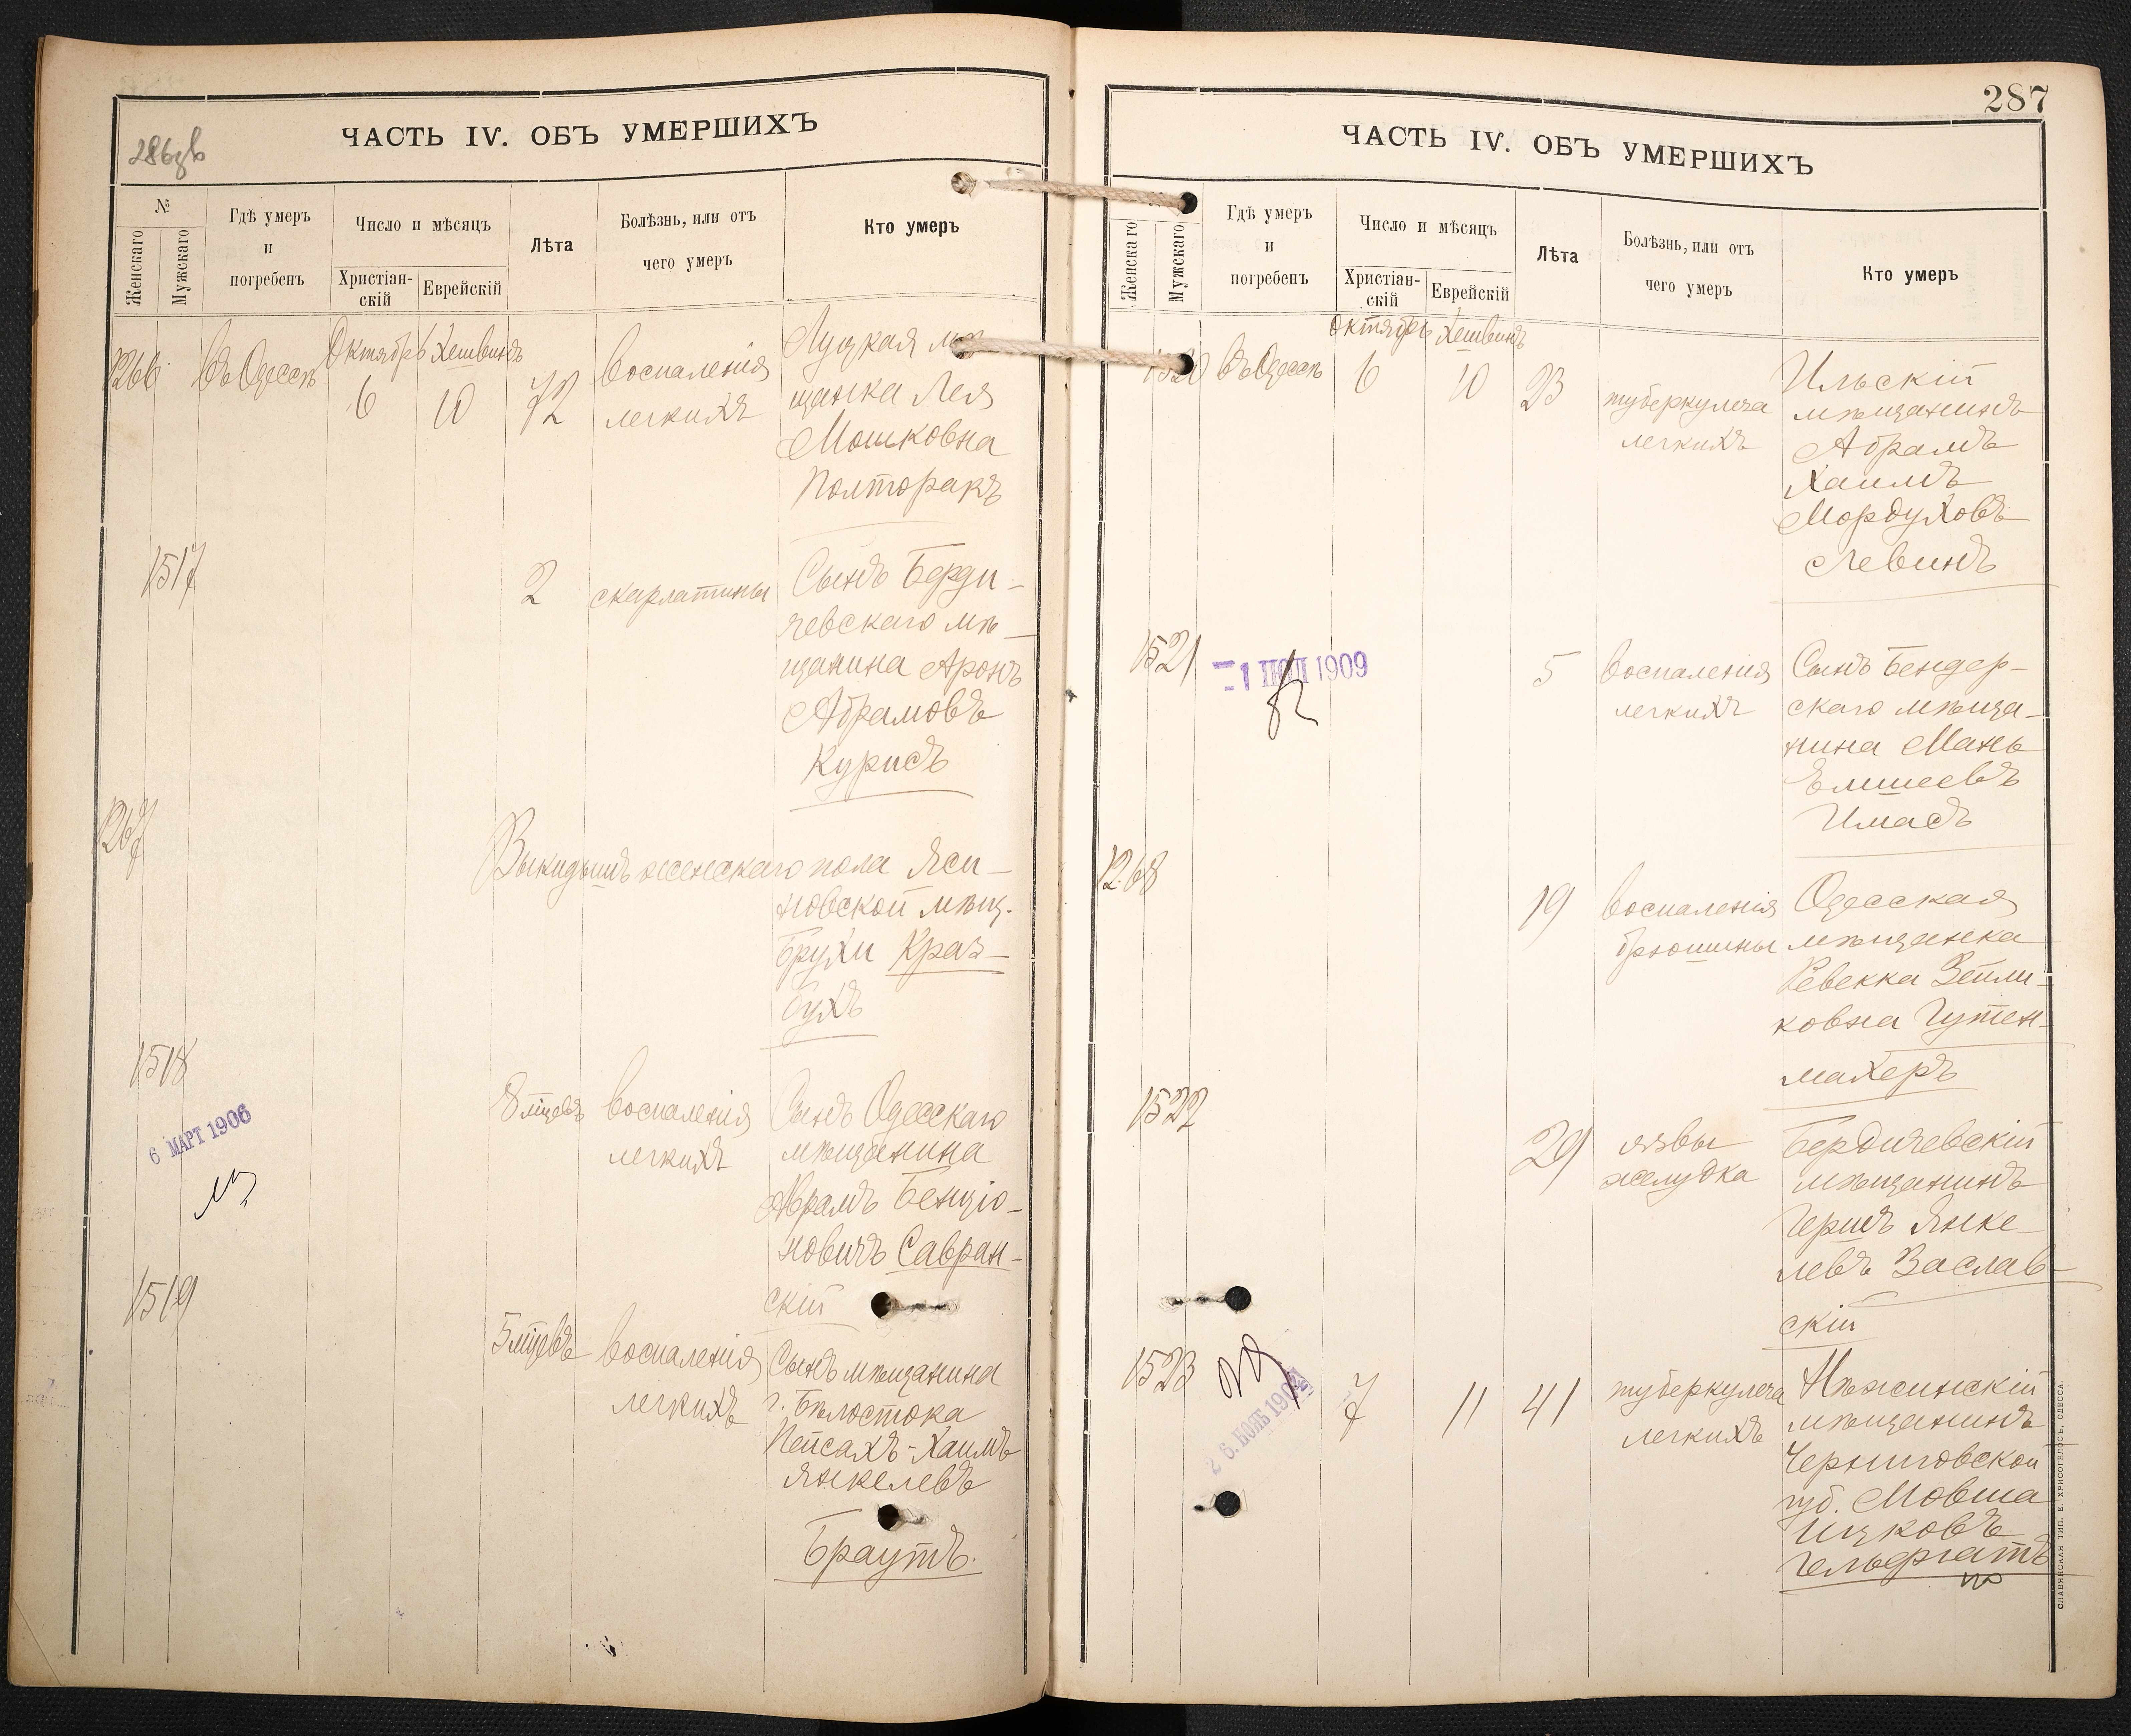 286зв
ЧАСТЬ IV. ОБЪ УМЕРШИХЪ
№
Женскаго
Мужскаго
Гдѣ умеръ
и
погребенъ
Число и мѣсяцъ
Христіан-
скій
Еврейскій
Лѣта
Болѣзнь, или отъ
чего умеръ
Кто умеръ
1266
въ Одессѣ
Октябрь
6
Хешвинъ
10
72
воспаленія
легкихъ
Луцкая мѣ
щанка Лея
Мошковна
Полторакъ
1517
2
скарлатины
Сынъ Берди-
чевскаго мѣ-
щанина Аронъ
Абрамовъ
Курисъ
1267
Выкидышъ женскаго пола Яси-
новской мѣщ.
Брухи Краз-
бухъ
1518
6 МАРТ 1906
8 мцевъ
воспаленія
легкихъ
Сынъ Одесскаго
мѣщанина
Абрамъ Бенціо-
новичъ Савран-
скій
1519
5 мцевъ
воспаленія
легкихъ
Сынъ мѣщанина
г. Бѣлостока
Пейсахъ-Хаимъ
Янкелевъ
Браутъ.
287
ЧАСТЬ IV. ОБЪ УМЕРШИХЪ
Женскаго
Мужскаго
Гдѣ умеръ
и
погребенъ
Число и мѣсяцъ
Христіан-
скій
Еврейскій
Лѣта
Болѣзнь, или отъ
чего умеръ
Кто умеръ
1520
въ Одессѣ
Октябрь
6
Хешвинъ
10
23
туберкулеза
легкихъ
Ильскій
мѣщанинъ
Абрамъ
Хаимъ
Мордуховъ
Левинъ
1521
1909
5
воспаленія
легкихъ
Сынъ Бендер-
скаго мѣща-
нина Мань
Елишеевъ
Имасъ
1268
19
воспаленія
брюшины
Одесская
мѣщанка
Ревекка Зейли-
ковна Гутен-
махеръ
1522
29
язвы
желудка
Бердичевскій
мѣщанинъ
Гершъ Янке-
левъ Заслав-
скій
1523
7
11
41
туберкулеза
легкихъ
Нѣжинскій
мѣщанинъ
Черниговской
губ. Мовша
Ицковъ
Гельфгатъ
СЛАВЯНСКАЯ ТИП. Е. ХРИСОГЕЛОСЪ, ОДЕССА.